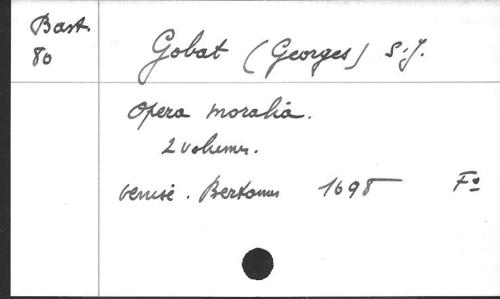 Bast.
80
Gobat (Georges) S.J.
Opera moralia.
2 volumes.
Venise. Bertanus 1698 Fo